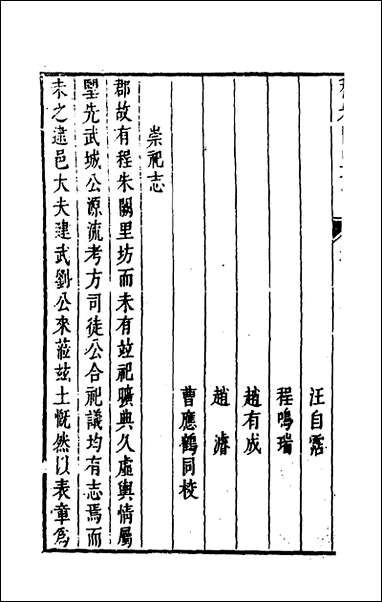 汪自霑
程鳴瑞
趙有成
趙濬
曹應鶴同校
崇祀志
郡故有程朱闕里坊而未有竝祀曠典久虛輿情屬
望先武城公源流考方司徒公合祀議均有志焉而
未之逮邑大夫建武劉公來蒞玆土慨然以表章爲